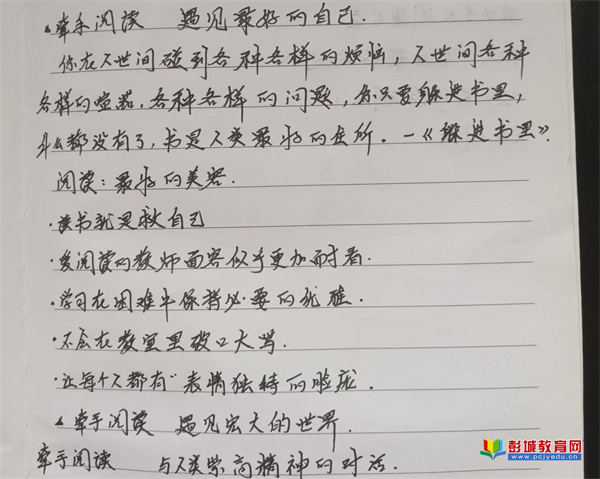 牵手阅读 遇见最好的自己.
你在人世间碰到各种各样的烦恼,人世间各种
各样的喧嚣,各种各样的问题,你只要躲进书里,
什么都没有了,书是人类最好的处所.—《躲进书里》
阅读:最好的美容.
·读书就是救自己
·爱阅读的教师面容似乎更加耐看.
·学习在困难中保持必要的优雅.
·不会在教室里破口大骂.
·让每个人都有"表情独特的脸庞.
牵手阅读 遇见宏大的世界.
牵手阅读 与人类崇高精神的对话.
彭城教育网
www.pcjyedu.cn